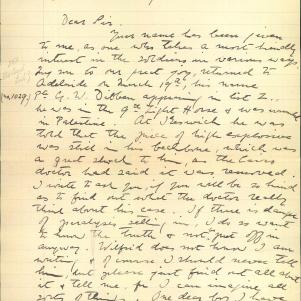 Dear Sir.
Your name has been given
to me, as one who takes a most friendly
interest in the soldiers in various ways.
to our great joy, returned to
Adelaide on March 19th, his name
(No 1029) Pte G. W. appears in list
he was in the 9th Light Horse & was wounded
in Palestine. At he was
told that the piece of high explosive
was still in his backbone, which was
a great shock to him, as the Cairo
doctor had said it was removed.
I write to ask you if you will be so kind
as to find out what the doctor really
think about his case. If there is danger
of paralysis setting in, I do so want
to know the truth & not put off in
anyway. Wilfrid does not know I am
writing, & of course I should never tell
him, but please just find out all about
it & tell me, for I can imagine all
sorts of things. One dear boy I have